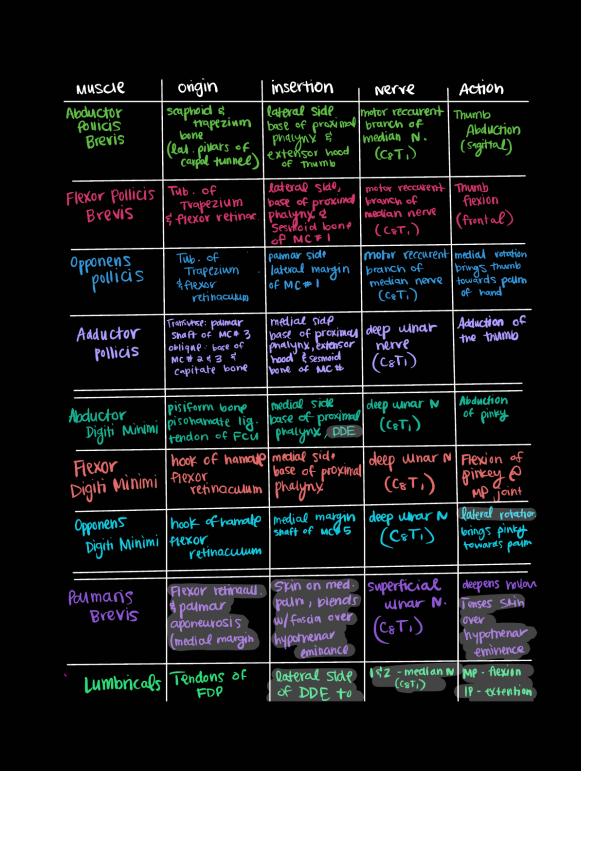 Muscle origin insertion Nerve Action
Abductor Pollicis Brevis
scaphoid & trapezium bone (lat. pillars of carpal tunnel)
lateral side base of proximal phalynx & extensor hood of thumb
motor reccurent branch of median N. (C8T1)
Thumb Abduction (sagittal)
Flexor Pollicis Brevis
Tub. of Trapezium & flexor retinac.
lateral side, base of proximal phalynx & Sesmoid bone of MC#1
motor reccurent branch of median nerve (C8T1)
Thumb flexion (frontal)
Opponens pollicis
Tub. of Trapezium & flexor retinaculum
palmar side lateral margin of MC#1
motor reccurent branch of median nerve (C8T1)
medial rotation brings thumb towards palm of hand
Adductor pollicis
Transverse: palmar shaft of MC#3 oblique: base of MC#2&3 & capitate bone
medial side base of proximal phalynx, extensor hood & sesmoid bone of MC#
deep ulnar nerve (C8T1)
Adduction of the thumb
Abductor Digiti Minimi
pisiform bone pisohamate lig. tendon of FCU
medial side base of proximal phalynx, DDE
deep ulnar N (C8T1)
Abduction of pinky
Flexor Digiti Minimi
hook of hamate flexor retinaculum
medial side base of proximal phalynx
deep ulnar N (C8T1)
Flexion of pinkey @ MP joint
Opponens Digiti Minimi
hook of hamate flexor retinaculum
medial margin shaft of MC#5
deep ulnar N (C8T1)
lateral rotation brings pinky towards palm
Palmaris Brevis
Flexor retinacul. & palmar aponeurosis (medial margin
Skin on med. palm, blends w/fascia over hypothenar eminance
superficial ulnar N. (C8T1)
deepens hollow Tenses skin over hypothenar eminence
Lumbricals
Tendons of FDP
lateral side of DDE to
1&2 - median N (C8T1)
MP - flexion IP - extention